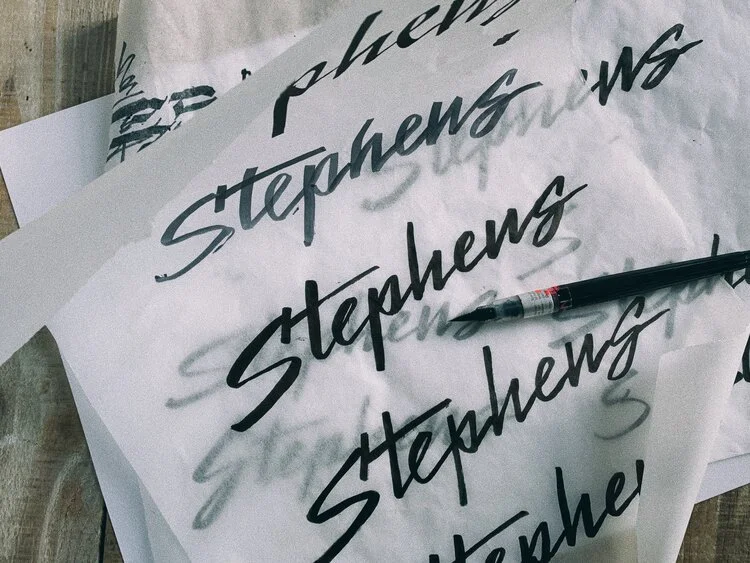 phen
Stephens
ns
Stephens
Stephens
Stephe